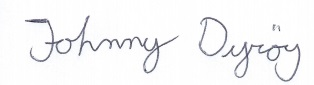 Johnny Dyröy